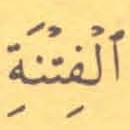 ٱلْفِتْنَةِ